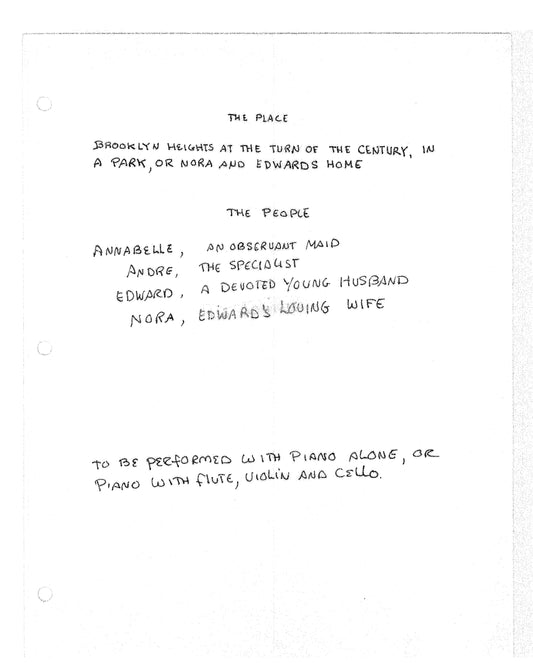 THE PLACE
BROOKLYN HEIGHTS AT THE TURN OF THE CENTURY, IN
A PARK, OR NORA AND EDWARDS HOME
THE PEOPLE
ANNABELLE, AN OBSERVANT MAID
ANDRE, THE SPECIALIST
EDWARD, A DEVOTED YOUNG HUSBAND
NORA, EDWARD'S LOVING WIFE
TO BE PERFORMED WITH PIANO ALONE, OR
PIANO WITH FLUTE, VIOLIN AND CELLO.